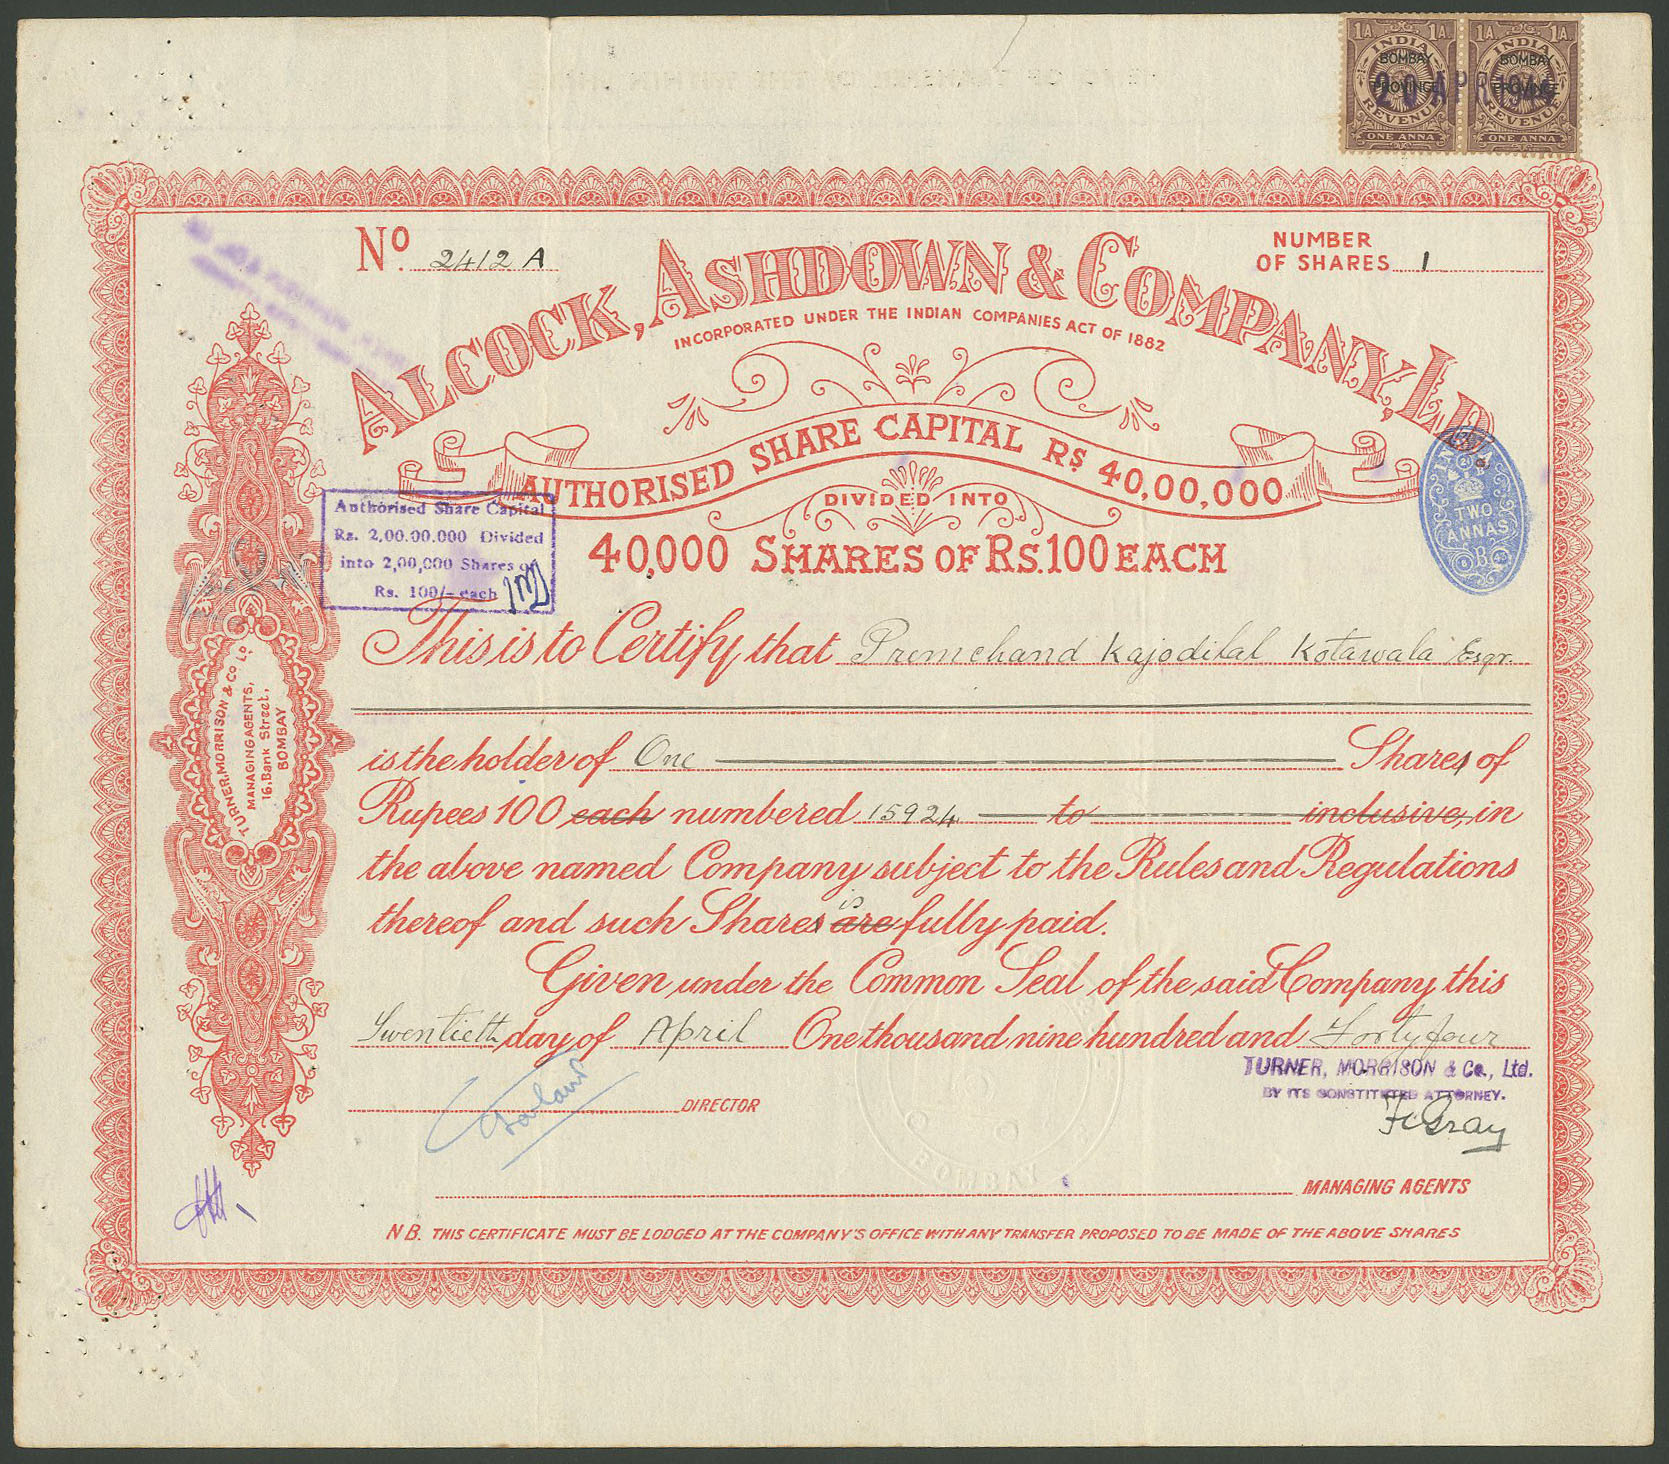 1A 1A 1A 1A
INDIA INDIA
BOMBAY BOMBAY
PROVINCE PROVINCE
20 APR 1944
REVENUE REVENUE
ONE ANNA ONE ANNA
No. 2412 A
NUMBER
OF SHARES 1
ALCOCK, ASHDOWN & COMPANY, LD
INCORPORATED UNDER THE INDIAN COMPANIES ACT OF 1882
AUTHORISED SHARE CAPITAL RS 40,00,000
DIVIDED INTO
40,000 SHARES OF RS. 100 EACH
Authorised Share Capital
Rs. 2,00,00,000 Divided
into 2,00,000 Shares of
Rs. 100/- each
INDIA
TWO
ANNAS
B
This is to Certify that Premchand Kajodilal Kotawala Esqr.
is the holder of One Shares of
Rupees 100 each numbered 15924 to inclusive, in
the above named Company subject to the Rules and Regulations
thereof and such Shares is are fully paid.
Given under the Common Seal of the said Company this
Twentieth day of April One thousand nine hundred and Forty four
TURNER, MORRISON & Co LD
MANAGING AGENTS,
16, Bank Street,
BOMBAY
TURNER, MORRISON & Co., Ltd.
BY ITS CONSTITUTED ATTORNEY.
DIRECTOR
BOMBAY
MANAGING AGENTS
N B. THIS CERTIFICATE MUST BE LODGED AT THE COMPANY'S OFFICE WITH ANY TRANSFER PROPOSED TO BE MADE OF THE ABOVE SHARES